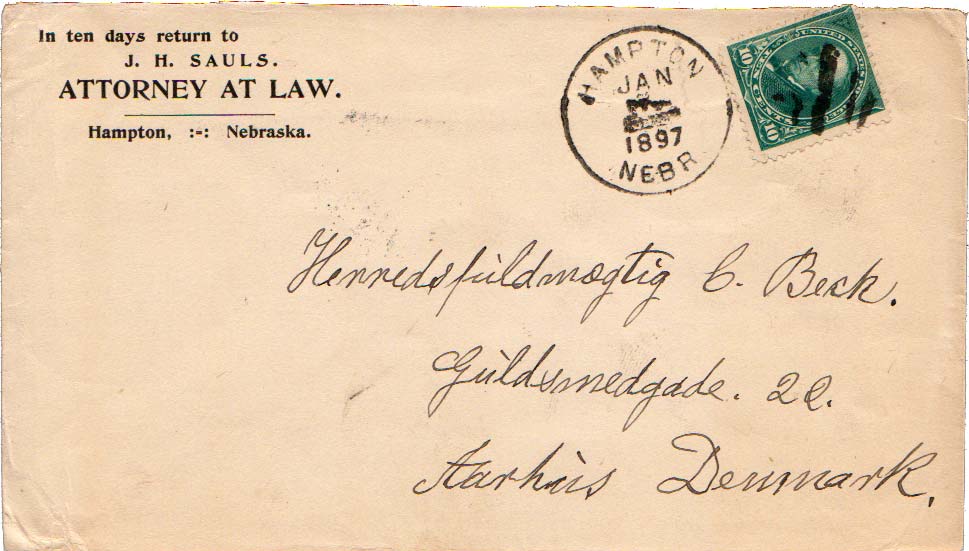 In ten days return to
J. H. SAULS.
ATTORNEY AT LAW.
Hampton, :-: Nebraska.
HAMPTON
JAN
1897
NEBR
10
UNITED STATES
CENTS
10
Herredsfuldmægtig C. Beck.
Guldsmedgade. 22.
Aarhus Denmark,